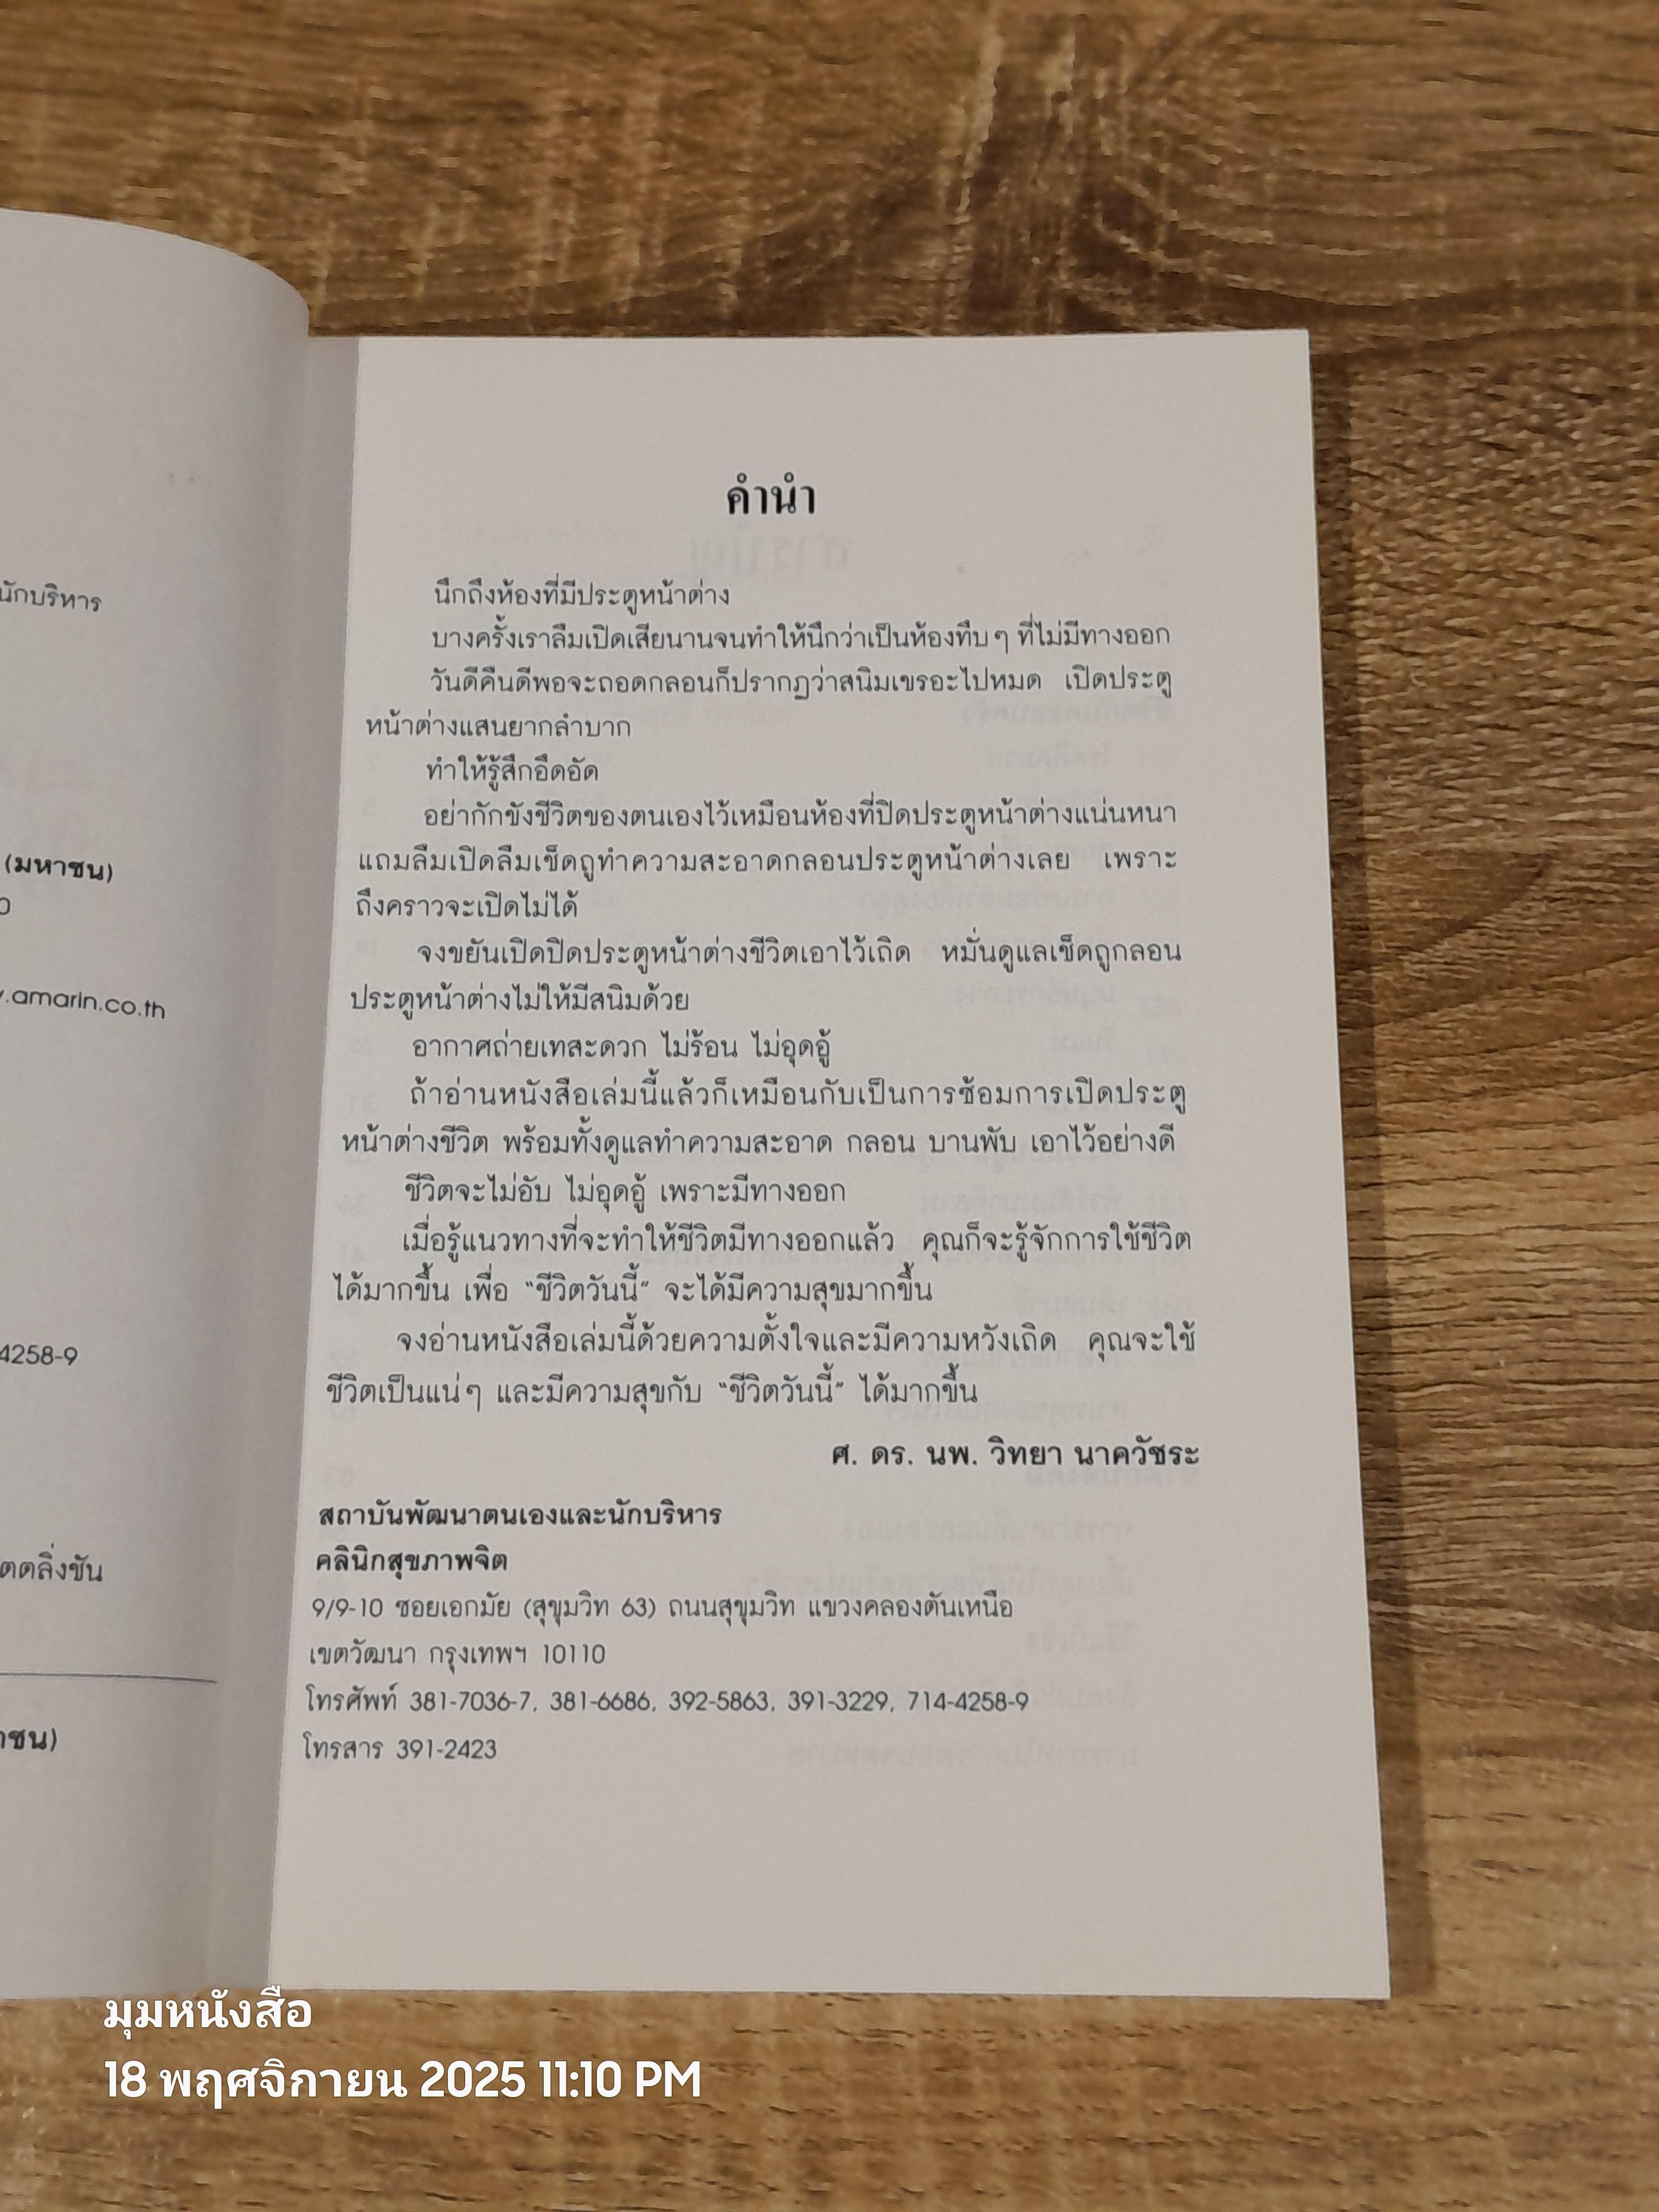 นักบริหาร
(มหาชน)
.amarin.co.th
4258-9
ตลิ่งชัน
คำนำ
นึกถึงห้องที่มีประตูหน้าต่าง
บางครั้งเราลืมเปิดเสียนานจนทำให้นึกว่าเป็นห้องทึบๆ ที่ไม่มีทางออก
วันดีคืนดีพอจะถอดกลอนก็ปรากฏว่าสนิมเขรอะไปหมด เปิดประตู
หน้าต่างแสนยากลำบาก
ทำให้รู้สึกอึดอัด
อย่ากักขังชีวิตของตนเองไว้เหมือนห้องที่ปิดประตูหน้าต่างแน่นหนา
แถมลืมเปิดลืมเช็ดถูทำความสะอาดกลอนประตูหน้าต่างเลย เพราะ
ถึงคราวจะเปิดไม่ได้
จงขยันเปิดปิดประตูหน้าต่างชีวิตเอาไว้เถิด หมั่นดูแลเช็ดถูกลอน
ประตูหน้าต่างไม่ให้มีสนิมด้วย
อากาศถ่ายเทสะดวก ไม่ร้อน ไม่อุดอู้
ถ้าอ่านหนังสือเล่มนี้แล้วก็เหมือนกับเป็นการซ้อมการเปิดประตู
หน้าต่างชีวิต พร้อมทั้งดูแลทำความสะอาด กลอน บานพับ เอาไว้อย่างดี
ชีวิตจะไม่อับ ไม่อุดอู้ เพราะมีทางออก
เมื่อรู้แนวทางที่จะทำให้ชีวิตมีทางออกแล้ว คุณก็จะรู้จักการใช้ชีวิต
ได้มากขึ้น เพื่อ “ชีวิตวันนี้” จะได้มีความสุขมากขึ้น
จงอ่านหนังสือเล่มนี้ด้วยความตั้งใจและมีความหวังเถิด คุณจะใช้
ชีวิตเป็นแน่ๆ และมีความสุขกับ “ชีวิตวันนี้” ได้มากขึ้น
ศ. ดร. นพ. วิทยา นาควัชระ
สถาบันพัฒนาตนเองและนักบริหาร
คลินิกสุขภาพจิต
9/9-10 ซอยเอกมัย (สุขุมวิท 63) ถนนสุขุมวิท แขวงคลองตันเหนือ
เขตวัฒนา กรุงเทพฯ 10110
โทรศัพท์ 381-7036-7, 381-6686, 392-5863, 391-3229, 714-4258-9
โทรสาร 391-2423
มุมหนังสือ
18 พฤศจิกายน 2025 11:10 PM